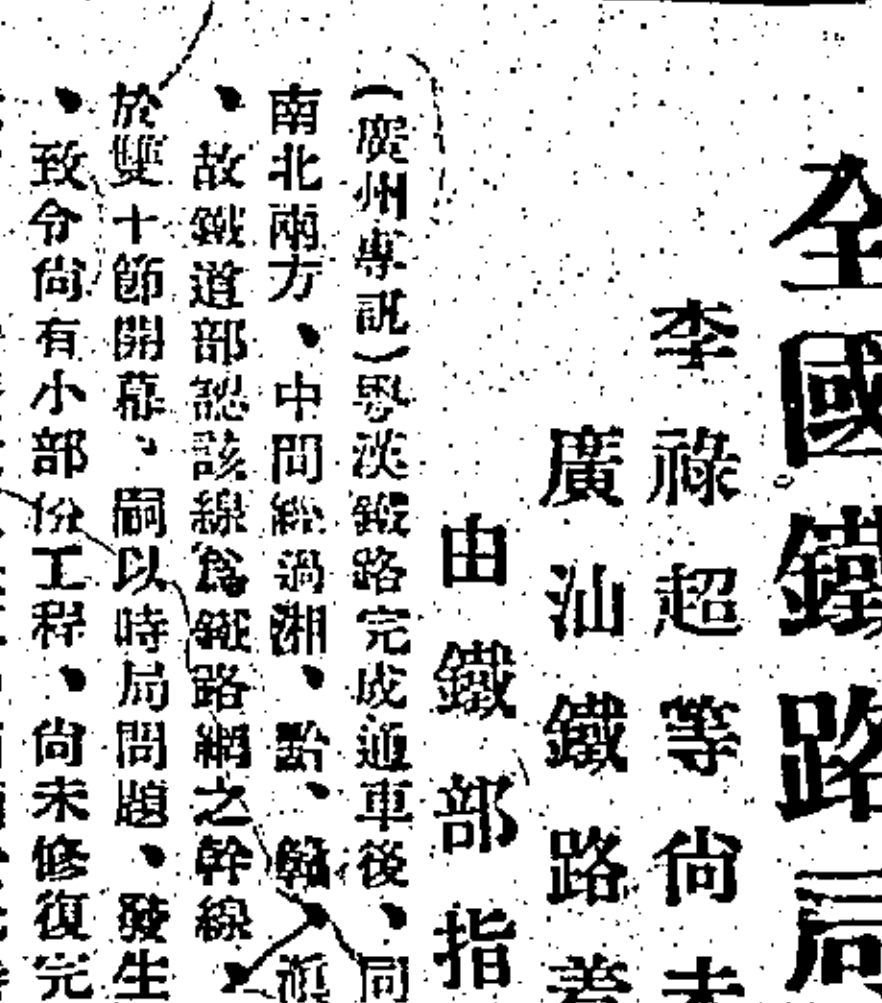 全國鐵路局
李祿超等尙未
廣汕鐵路着
由鐵部指
(廣州專訊)粵漢鐵路完成通車後、同
南北兩方、中間經過湘、黔、贛、滇
、故鐵道部認該線爲鐵路網之幹線、
於雙十節開幕、嗣以時局問題、發生
、致令尙有小部份工程、尙未修復完